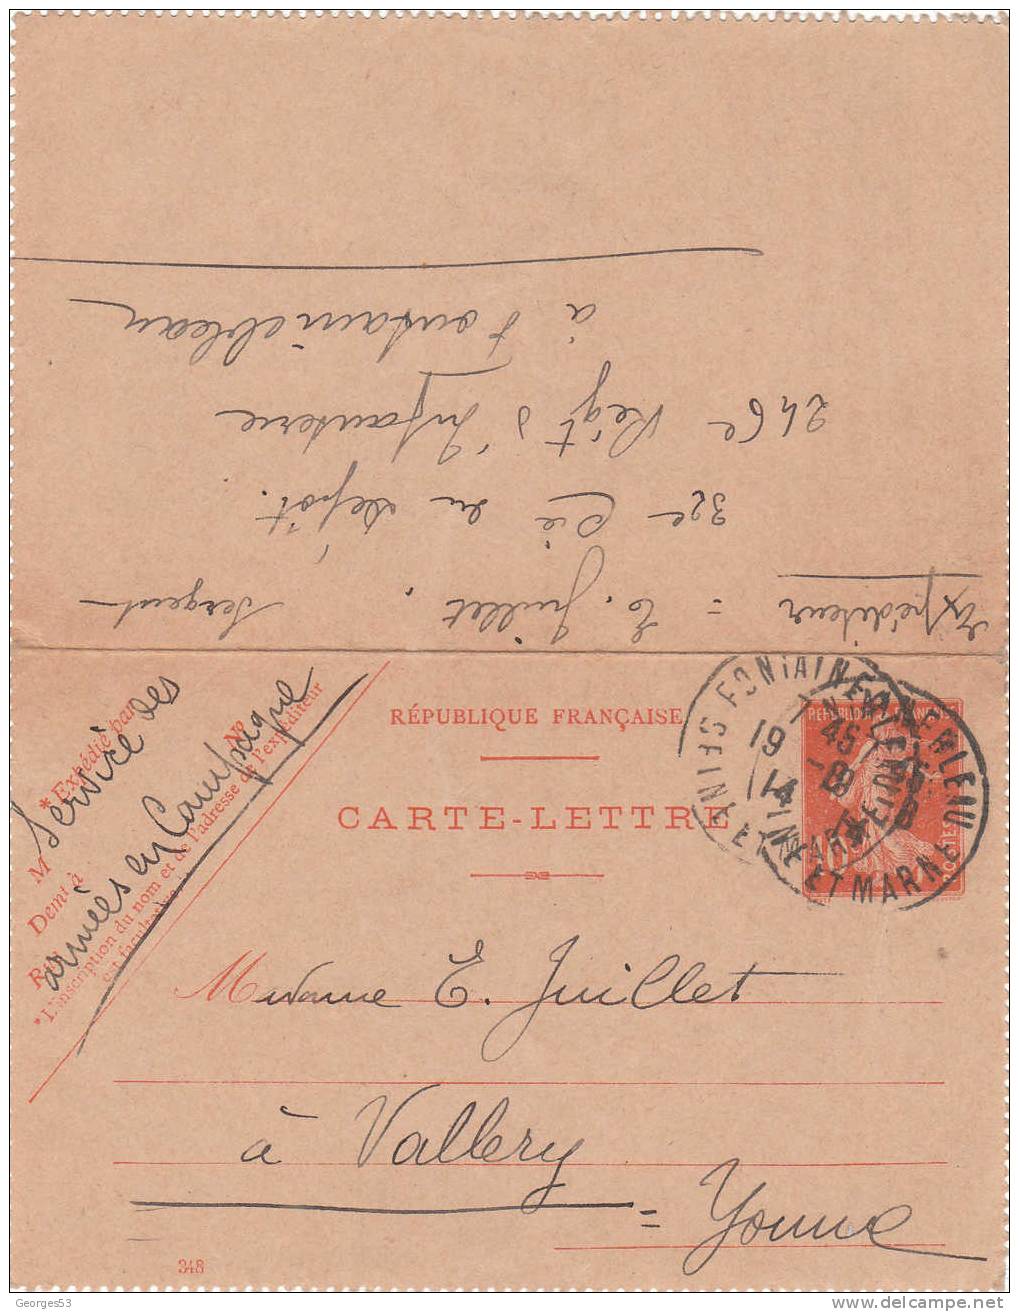 Expéditeur = E. Juillet. Sergent
32e Cie du dépôt.
246e Régt d'Infanterie
à Fontainebleau
*Expédié par
M
Demt à
R
No
*L'inscription du nom et de l'adresse de l'expéditeur
est facultative.
Service des
armées en Campagne
RÉPUBLIQUE FRANÇAISE
CARTE-LETTRE
FONTAINEBLEAU
SEINE ET MARNE
19
14
Madame E. Juillet
à Vallery
= Yonne
348
Georges53
www.delcampe.net